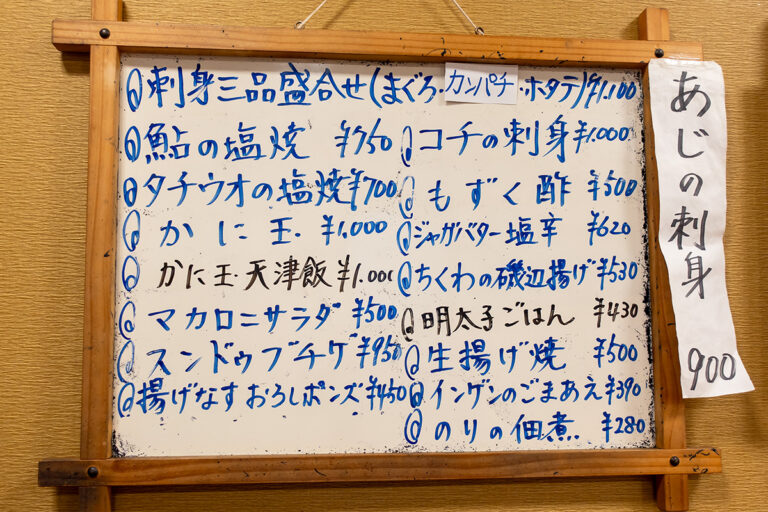 刺身三品盛合せ(まぐろ・カンパチ・ホタテ)¥1,100
鮎の塩焼 ¥750
タチウオの塩焼¥700
かに玉・ ¥1,000
かに玉・天津飯¥1,000
マカロニサラダ ¥500
スンドゥブチゲ¥950
揚げなすおろしポンズ¥450
コチの刺身¥1,000
もずく酢 ¥500
ジャガバター塩辛 ¥620
ちくわの磯辺揚げ¥530
明太子ごはん ¥430
生揚げ焼 ¥500
インゲンのごまあえ¥390
のりの佃煮 ¥280
あじの刺身
900